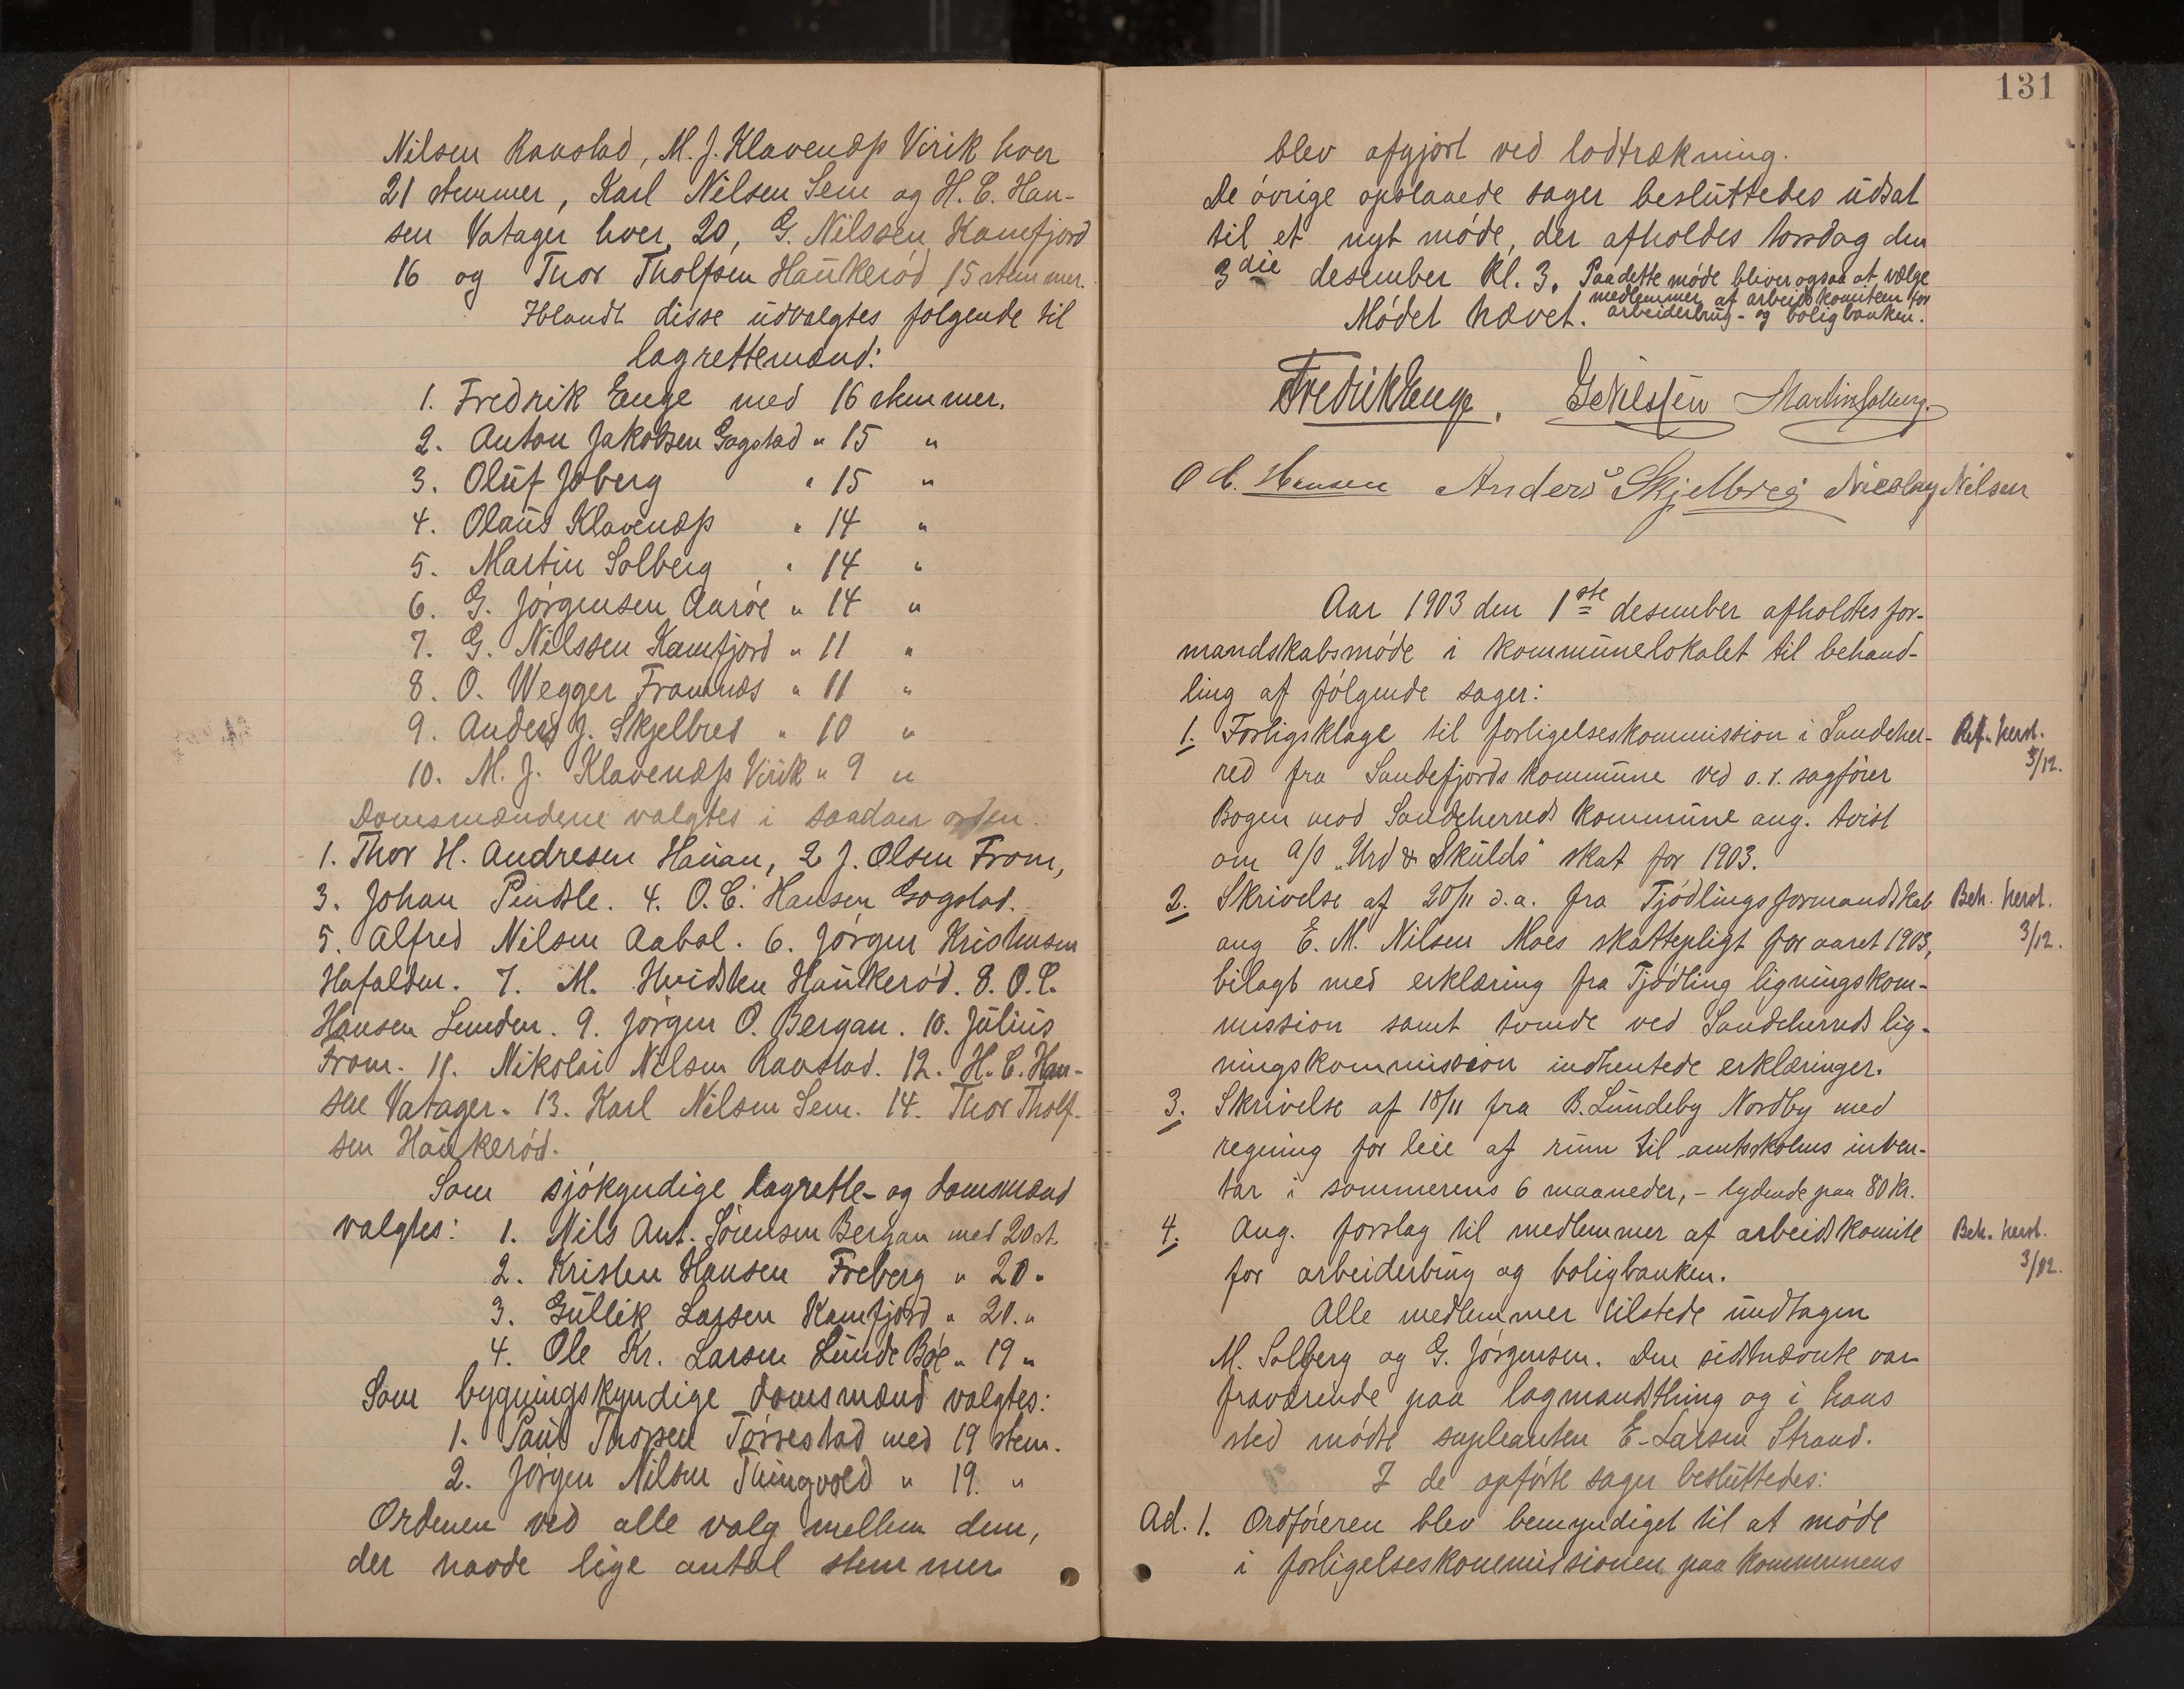 Nilsen Ranstad, M. J. Klavenæss Virik hver
21 stemmer, Karl Nilsen Sem og H. C. Han-
sen Vatager hver 20, G. Nilssen Kamfjord
16 og Thor Tholfsen Haukerød 15 stemmer.
Iblandt disse udvalgtes følgende til
lagrettemænd:
1. Fredrik Enge med 16 stemmer.
2. Anton Jakobsen Gogstad " 15 "
3. Oluf Joberg " 15 "
4. Olaus Klavenæss " 14 "
5. Martin Solberg " 14 "
6. G. Jørgensen Aarøe " 14 "
7. G. Nilssen Kamfjord " 11 "
8. O. Wegger Framnæs " 11 "
9. Anders J. Skjelbred " 10 "
10. M. J. Klavenæss Virik " 9 "
Domsmændene valgtes i saadan orden.
1. Thor H. Andresen Hauan, 2 J. Olsen From,
3. Johan Pindsle. 4. O. C. Hansen Gogstad.
5. Alfred Nilsen Aabol. 6. Jørgen Kristensen
Hafalden. 7. M. Hvidsten Haukerød. 8. O. C.
Hansen Lunden. 9. Jørgen O. Bergan. 10. Julius
From. 11. Nikolai Nilsen Ranstad. 12. H. C. Han-
sen Vatager. 13. Karl Nilsen Sem. 14. Thor Tholf-
sen Haukerød.
Som sjøkyndige lagrette- og domsmænd
valgtes: 1. Nils Ant. Sørensen Bergan med 20 st.
2. Kristen Hansen Freberg " 20 "
3. Gullik Larsen Kamfjord " 20. "
4. Ole Kr. Larsen Lunde Bøe " 19 "
Som bygningskyndige domsmænd valgtes:
1. Paul Thorsen Tørrestad med 19 stem.
2. Jørgen Nilsen Thingvold " 19. "
Ordenen ved alle valg mellem dem,
der havde lige antal stemmer
131
blev afgjort ved lodtrækning.
De øvrige opslaaede sager besluttedes udsat
til et nyt møde, der afholdes torsdag den
3die desember kl. 3. Paa dette møde bliver ogsaa at vælge
medlemmer af arbeidskomiteen for
Mødet hævet. arbeiderbrug- og boligbanken.
Fredrik Enge. G Nilssen Martin Solberg.
O C. Hansen Anders Skjelbred Nicolay Nilsen
Aar 1903 den 1ste desember afholdtes for-
mandskabsmøde i kommunelokalet til behand-
ling af følgende sager:
1. Forligsklage til forligelseskommission i Sandeher- Ref. herst.
red fra Sandefjords kommune ved o. r. sagfører 3/12.
Bogen mod Sandeherreds kommune ang. tvist
om a/s "Urd & Skulds" skat for 1903.
2. Skrivelse af 20/11 d. a. fra Tjødlings formandskab Beh. herst.
ang E. M. Nilsen Moes skattepligt for aaret 1903, 3/12.
bilagt med erklæring fra Tjødling ligningskom-
mission samt tvende ved Sandeherreds lig-
ningskommission indhentede erklæringer.
3. Skrivelse af 18/11 fra B. Lundeby Nordby med
regning for leie af rum til amtsskolens inven-
tar i sommerens 6 maaneder, - lydende paa 80 kr.
4. Ang. forslag til medlemmer af arbeidskomite Beh. herst.
for arbeiderbrug og boligbanken. 3/12.
Alle medlemmer tilstede undtagen
M. Solberg og G. Jørgensen. Den sidstnævnte var
fraværende paa lagmandsthing og i hans
sted mødte supleanten E. Larsen Strand.
I de opførte sager besluttedes:
Ad. 1. Ordføreren blev bemyndiget til at møde
i forligelseskommissionen paa kommunens